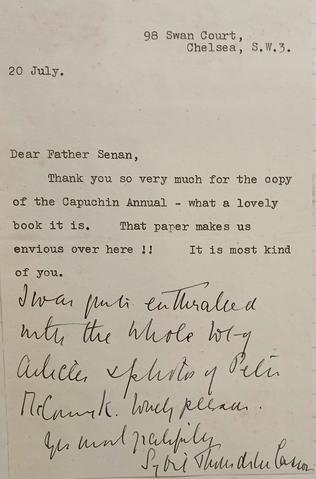 98 Swan Court,
Chelsea, S.W.3.
20 July.
Dear Father Senan,
Thank you so very much for the copy
of the Capuchin Annual - what a lovely
book it is. That paper makes us
envious over here !! It is most kind
of you.
I was quite enthralled
with the whole
articles & photos of
McCormick.
Yrs most gratefully
Sybil Thorndike Casson